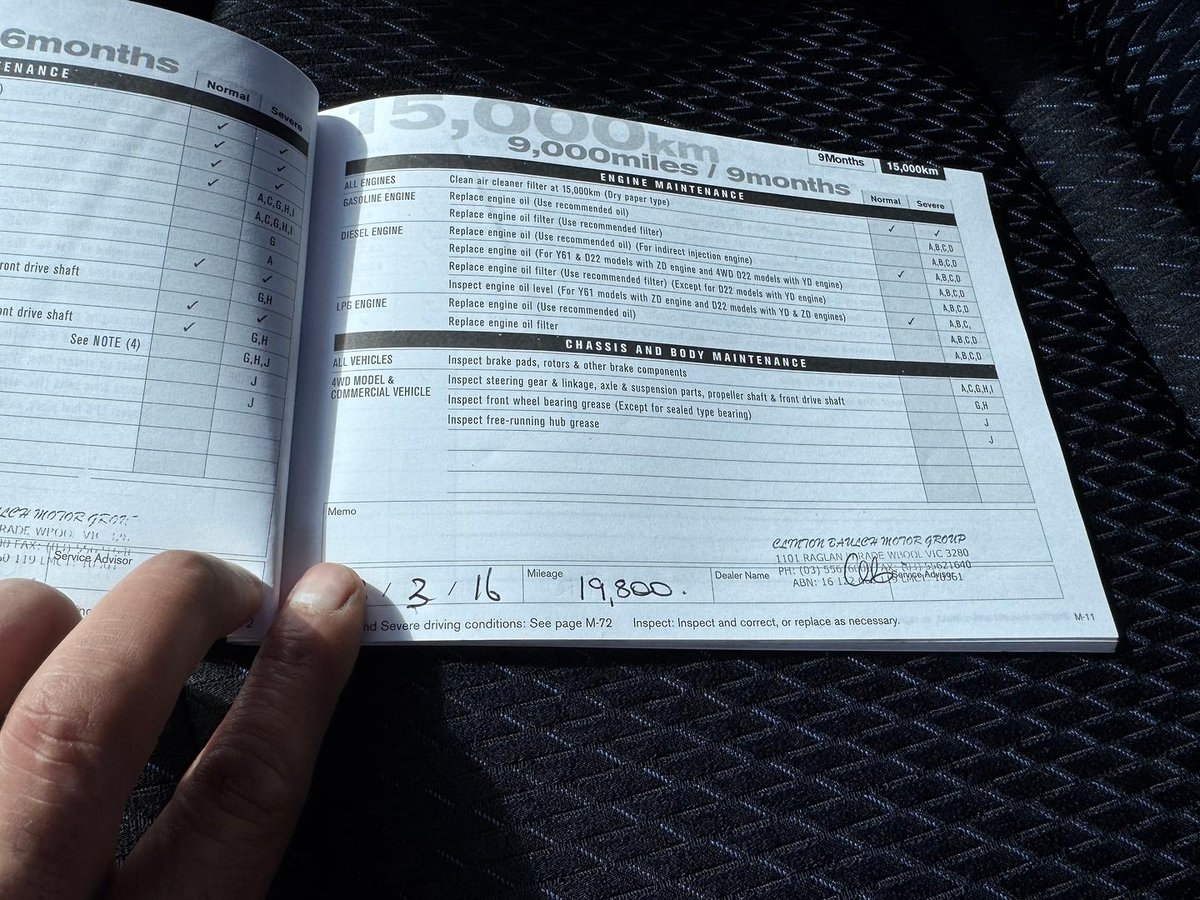 6months
ENANCE
Normal Severe
✓ ✓
✓ ✓
✓ ✓
✓ A,C,G,H,I
A,C,G,H,I
G
A
ront drive shaft ✓ ✓
G,H
✓ ✓
nt drive shaft ✓ G,H
See NOTE (4) G,H,J
J
J
Service Advisor
15,000km
9,000miles / 9months
9Months 15,000km
ENGINE MAINTENANCE
Normal Severe
ALL ENGINES Clean air cleaner filter at 15,000km (Dry paper type) ✓ ✓
GASOLINE ENGINE Replace engine oil (Use recommended oil) A,B,C,D
Replace engine oil filter (Use recommended filter) A,B,C,D
DIESEL ENGINE Replace engine oil (Use recommended oil) (For indirect injection engine) ✓ A,B,C,D
Replace engine oil (For Y61 & D22 models with ZD engine and 4WD D22 models with YD engine) A,B,C,D
Replace engine oil filter (Use recommended filter) (Except for D22 models with YD engine) A,B,C,D
Inspect engine oil level (For Y61 models with ZD engine and D22 models with YD & ZD engines) ✓ A,B,C,
LPG ENGINE Replace engine oil (Use recommended oil) A,B,C,D
Replace engine oil filter A,B,C,D
CHASSIS AND BODY MAINTENANCE
ALL VEHICLES Inspect brake pads, rotors & other brake components A,C,G,H,I
4WD MODEL &
COMMERCIAL VEHICLE
Inspect steering gear & linkage, axle & suspension parts, propeller shaft & front drive shaft G,H
Inspect front wheel bearing grease (Except for sealed type bearing) J
Inspect free-running hub grease J
Memo
CLINTON BAULCH MOTOR GROUP
1101 RAGLAN PARADE W'BOOL VIC 3280
PH: (03) FAX: (03) 55621640
ABN: 16 10961
/ 3 / 16 Mileage 19,800. Dealer Name Service Advisor
nd Severe driving conditions: See page M-72 Inspect: Inspect and correct, or replace as necessary.
M-11